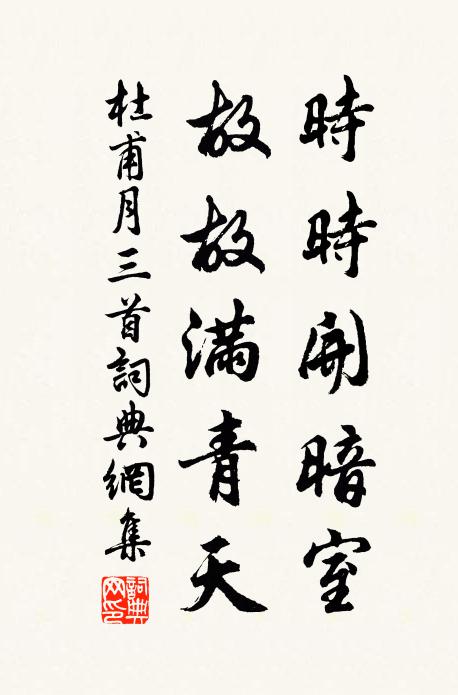 時時開暗室
故故滿青天
杜甫月三首詞典網集
詞典網印